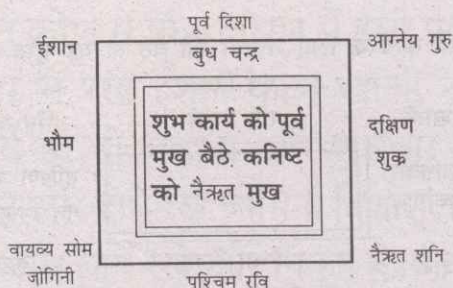 पूर्व दिशा
ईशान
बुध चन्द्र
आग्नेय गुरु
भौम
शुभ कार्य को पूर्व
मुख बैठे. कनिष्ट
को नैऋत मुख
दक्षिण
शुक
वायव्य सोम
जोगिनी
पश्चिम रवि
नैऋत शनि